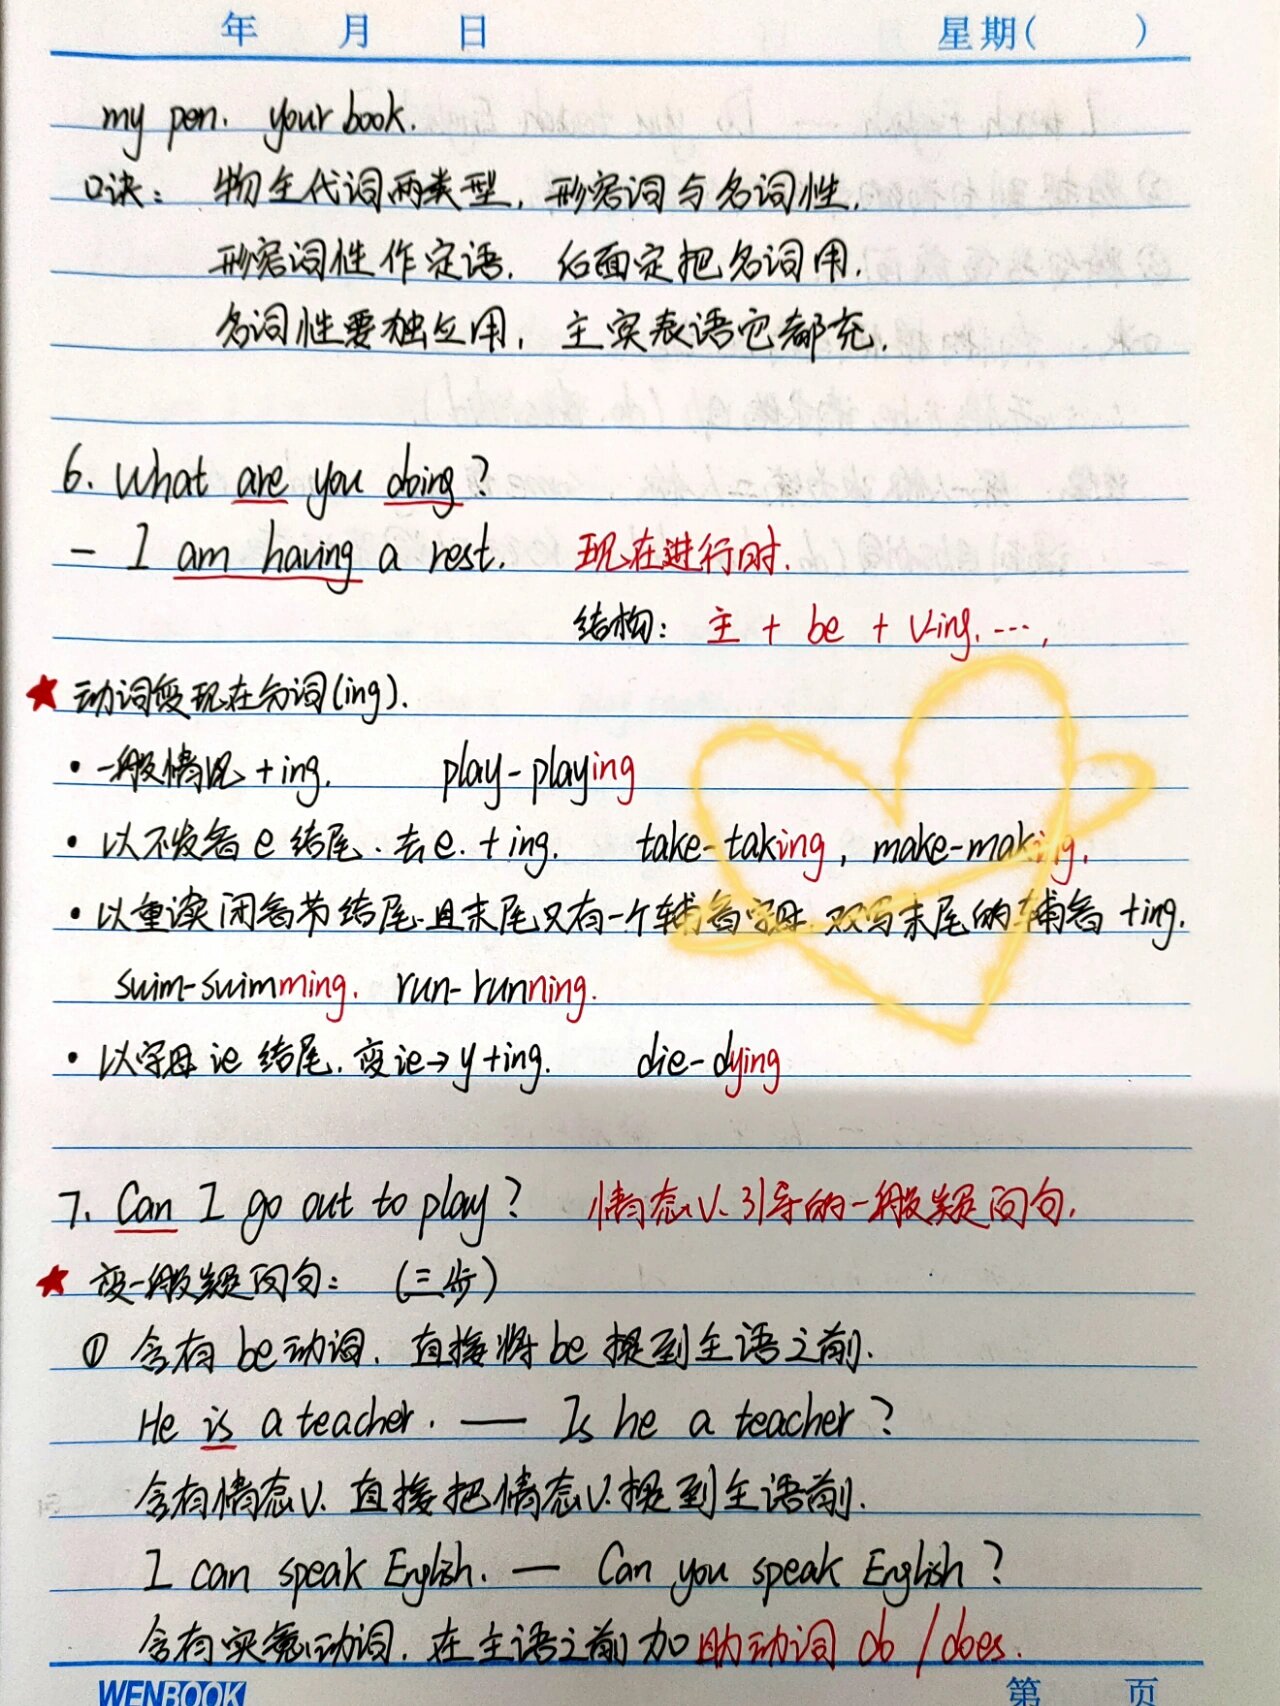 年 月 日 星期( )
my pen. your book.
口诀: 物主代词两类型, 形容词与名词性,
形容词性作定语, 后面定把名词用,
名词性要独立用, 主宾表语它都充.
6. What are you doing?
- I am having a rest. 现在进行时.
结构: 主 + be + v-ing. ….
★ 动词变现在分词(ing).
• 一般情况 +ing. play-playing
• 以不发音e结尾. 去e. +ing. take-taking, make-making.
• 以重读闭音节结尾.且末尾只有一个辅音字母.双写末尾的辅音 +ing.
swim-swimming. run-running.
• 以字母ie结尾. 变ie→y+ing. die-dying
7. Can I go out to play? 情态V.引导的一般疑问句.
★ 变一般疑问句: (三步)
① 含有be动词. 直接将be提到主语之前.
He is a teacher. — Is he a teacher?
含有情态V. 直接把情态V.提到主语前.
I can speak English. — Can you speak English?
含有实义动词. 在主语之前加助动词 do / does.
WENBOOK 第 页